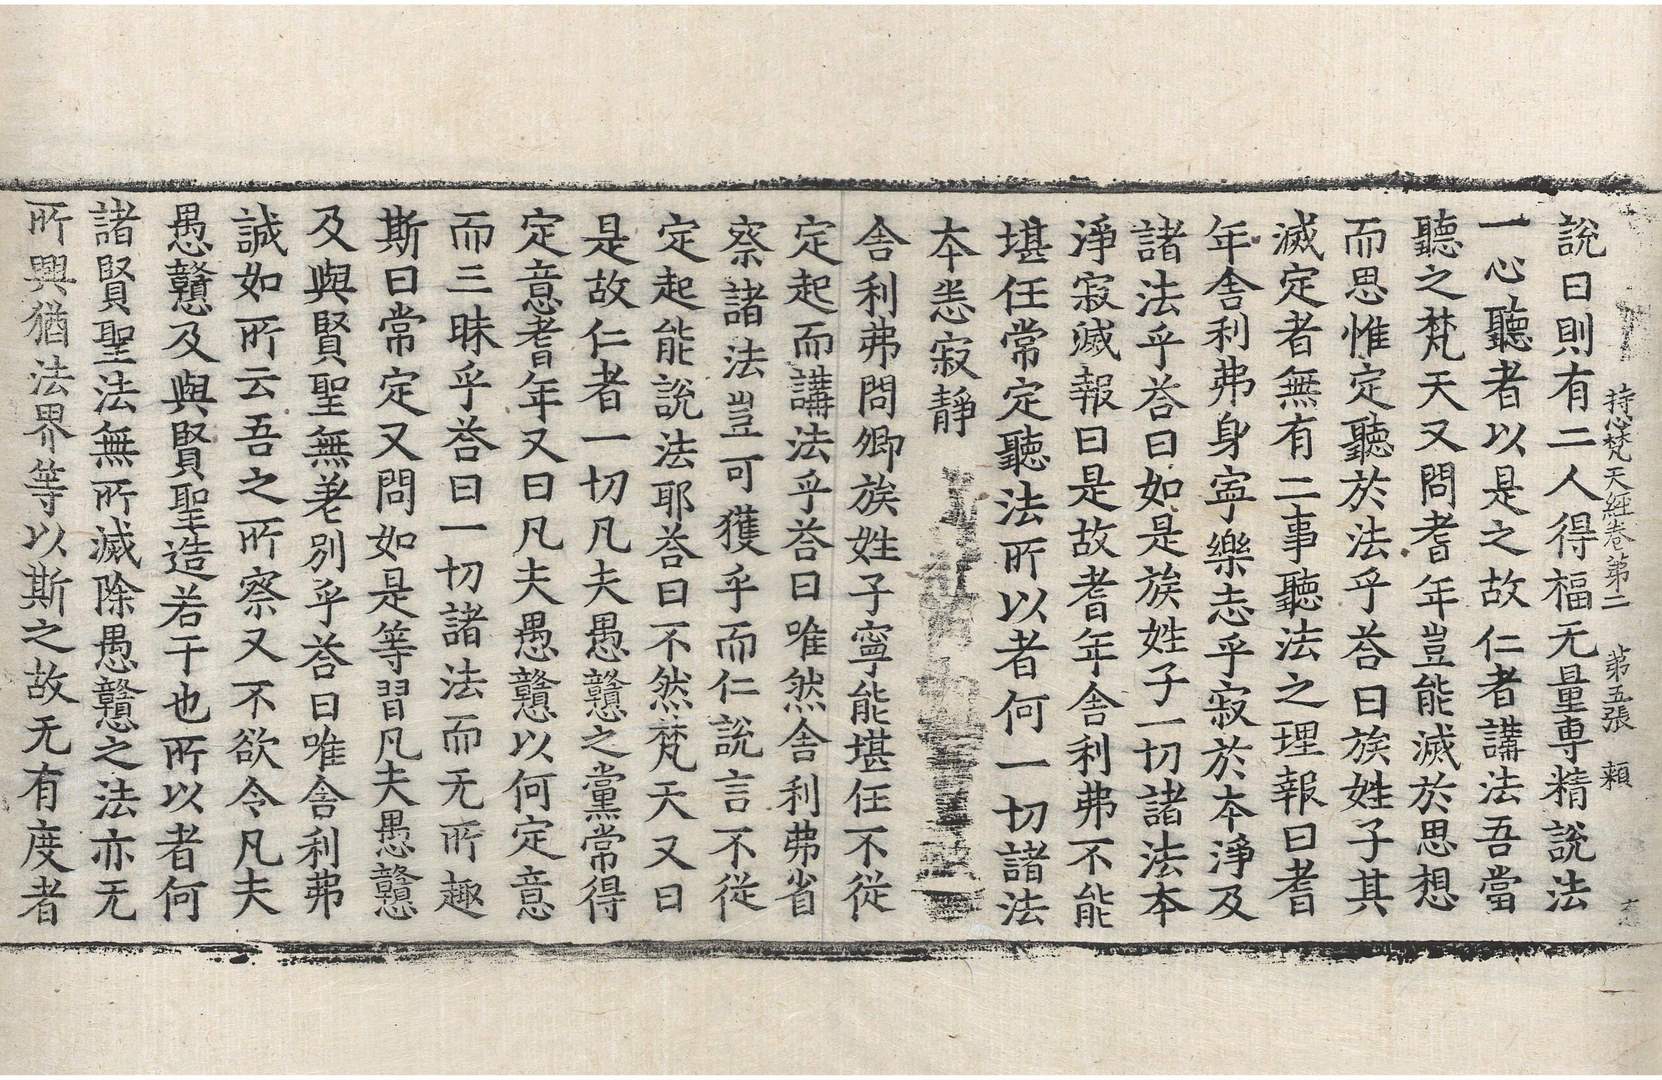 持心梵天經卷第二 第五張 賴
說曰則有二人得福无量専精說法
一心聽者以是之故仁者講法吾當
聽之梵天又問耆年豈能滅於思想
而思惟定聽於法乎荅曰族姓子其
滅定者無有二事聽法之理報曰耆
年舎利弗身寧樂志乎寂於本淨及
諸法乎荅曰如是族姓子一切諸法本
淨寂滅報曰是故耆年舎利弗不能
堪任常定聽法所以者何一切諸法
本悉寂靜
舎利弗問卿族姓子寧能堪任不從
定起而講法乎荅曰唯然舎利弗省
察諸法豈可獲乎而仁說言不從
定起能說法耶荅曰不然梵天又曰
是故仁者一切凡夫愚戇之黨常得
定意耆年又曰凡夫愚戇以何定意
而三昧乎荅曰一切諸法而无所趣
斯曰常定又問如是等習凡夫愚戇
及與賢聖無差別乎荅曰唯舎利弗
誠如所云吾之所察又不欲令凡夫
愚戇及與賢聖造若干也所以者何
諸賢聖法無所滅除愚戇之法亦无
所興猶法界等以斯之故无有度者